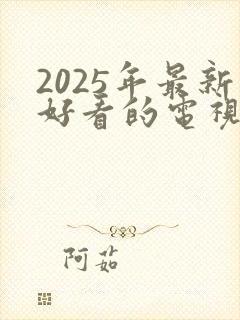 2025年最新
好看的電視
阿茹